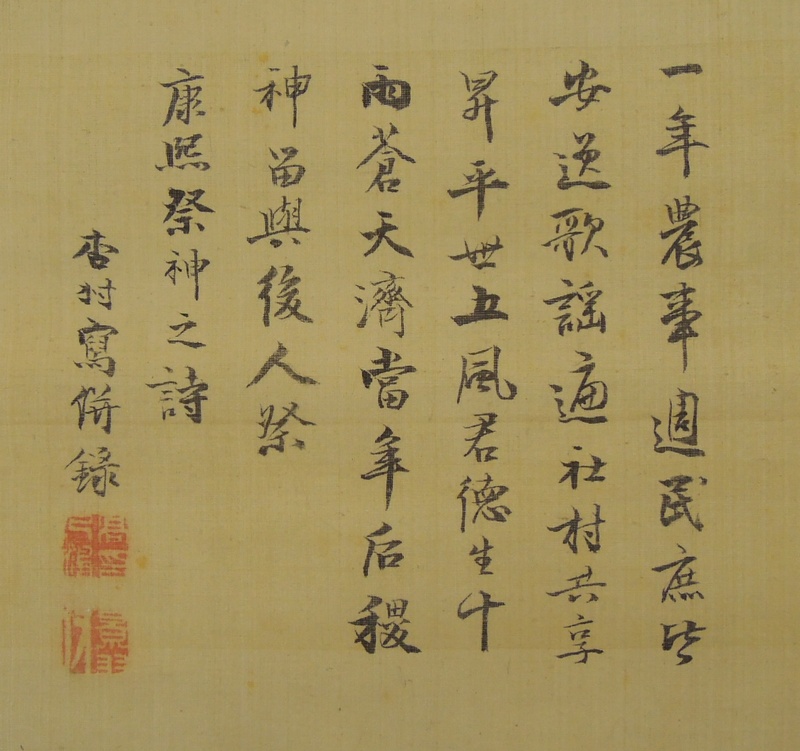 一年農事週民庶皆
安逸歌謡遍社村共享
昇平世五風君德生十
雨蒼天濟當年后稷
神留與後人祭
康熙祭神之詩
杏村寫併錄